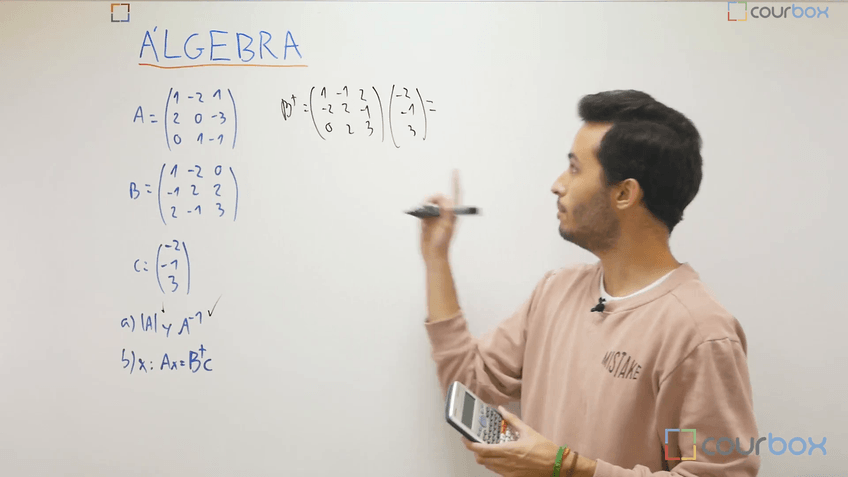 courbox
ÁLGEBRA
A = (1 -2 1
2 0 -3
0 1 -1)
B = (1 -2 0
-1 2 2
2 -1 3)
C = (-2
-1
3)
a) |A| y A⁻¹ ✓
b) x: Ax = Bᵗc
Bᵗ = (1 -1 2
-2 2 -1
0 2 3) (-2
-1
3) =
MISTAKE
courbox